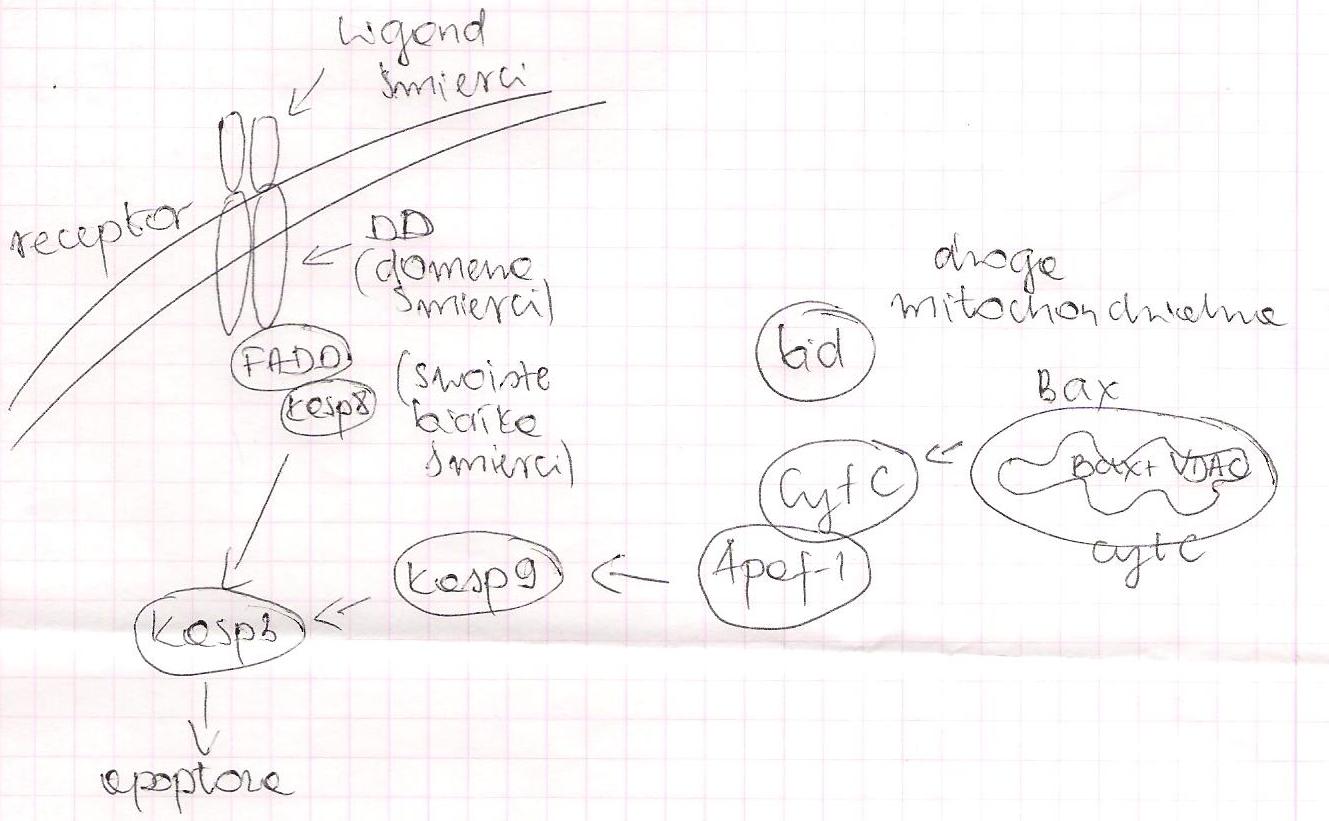 ligand
śmierci
receptor
DD
(domena
śmierci)
FADD
kasp8
(swoiste
białka
śmierci)
droga
mitochondrialna
bid
Bax
Bax+ VDAC
cyt C
Cyt C
Apaf-1
kasp9
kasp3
apoptoza